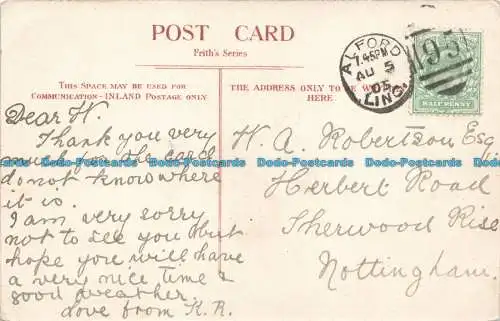 POST CARD
Frith's Series
THIS SPACE MAY BE USED FOR
COMMUNICATION - INLAND POSTAGE ONLY
THE ADDRESS ONLY TO BE WRITTEN
HERE
ALFORD
7.45PM
AU 5
05
LINC.
95
HALF PENNY
Dear H.
Thank you very
much for the card
do not know where
it is.
I am very sorry
not to see you but
hope you will have
a very nice time &
good weather.
love from K.R.
H. A. Robertson Esq
Herbert Road
Sherwood Rise
Nottingham.
Dodo-Postcards Dodo-Postcards Dodo-Postcards Dodo-Postcards